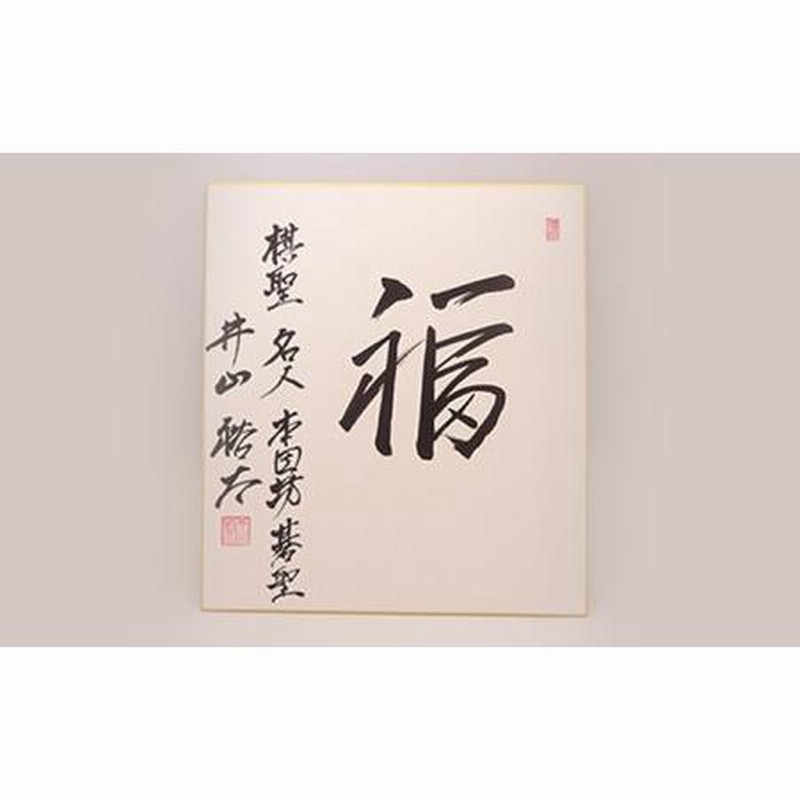 福
棋聖 名人 本因坊 碁聖
井山 裕太